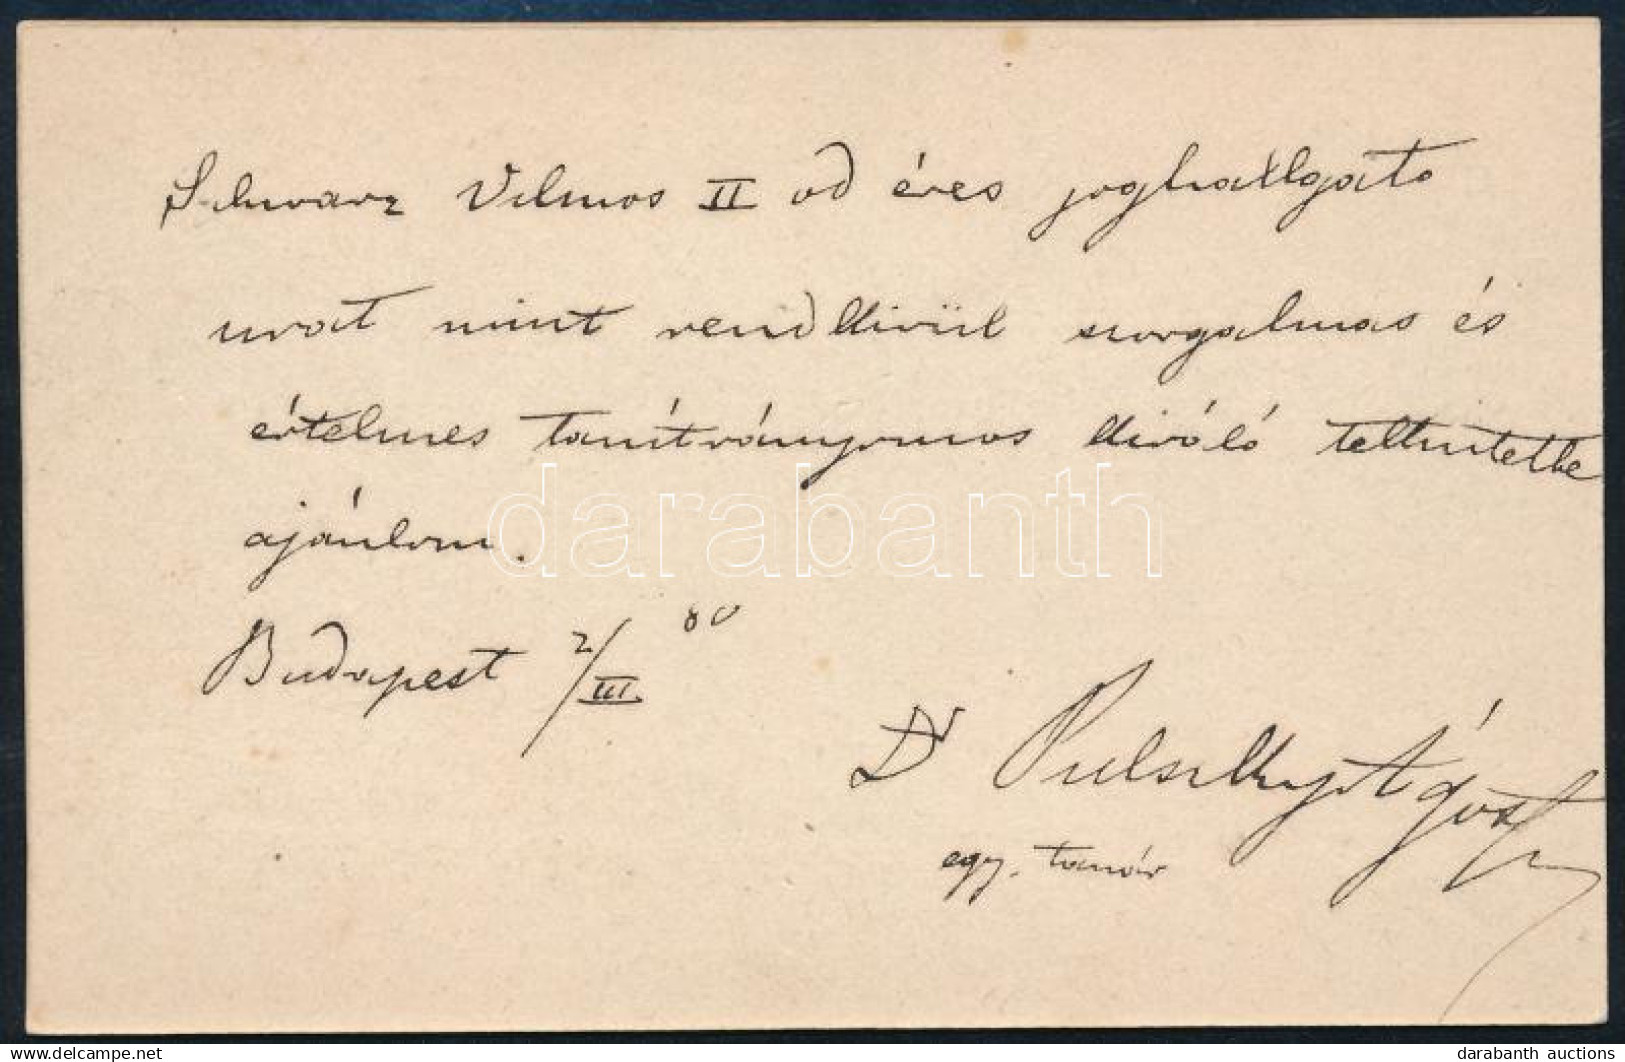 Schwarz Vilmos II od éves joghallgató
urat mint rendkivül szorgalmas és
értelmes tanítványomos kiváló tekintetbe
ajánlom.
Budapest 2/III. 80
Dr Pulszky Ágost
egy. tanár
darabanth
www.delcampe.net
darabanth auctions